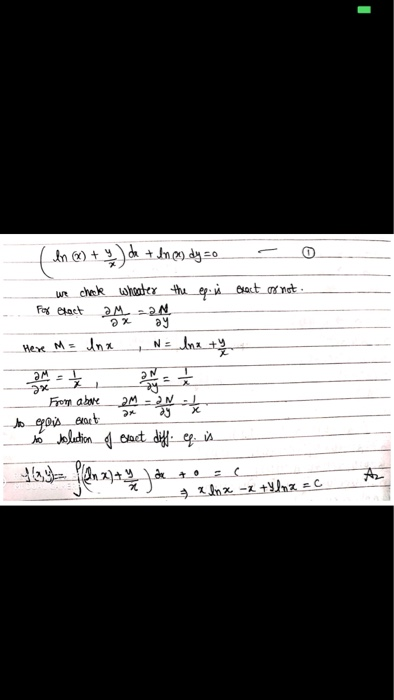 (ln(x) + y/x) dx + ln(x) dy = 0 — ①
we check wheater the eq. is exact or not.
For exact ∂M/∂x = ∂N/∂y
Here M = lnx , N = lnx + y/x
∂M/∂x = 1/x , ∂N/∂y = 1/x
From above ∂M/∂x = ∂N/∂y = 1/x
so eq ① is exact
so solution of exact diff. eq. is
f(x,y) = ∫(ln x) + y/x) dx + 0 = C
⇒ x lnx - x + y lnx = C